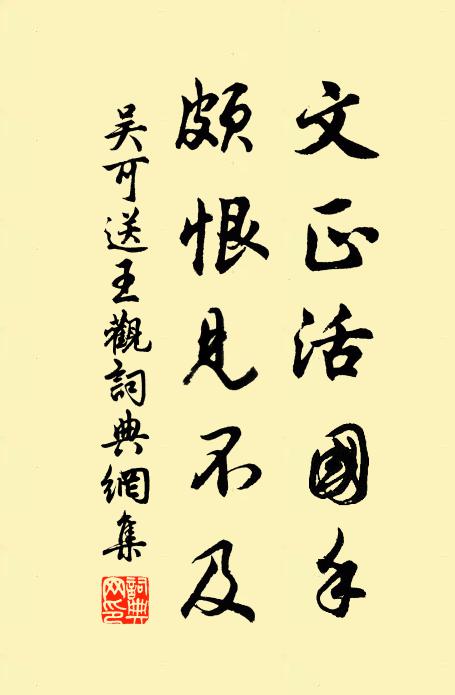 文正活國手
頗恨見不及
吴可送王觀詞典網集
詞典網印